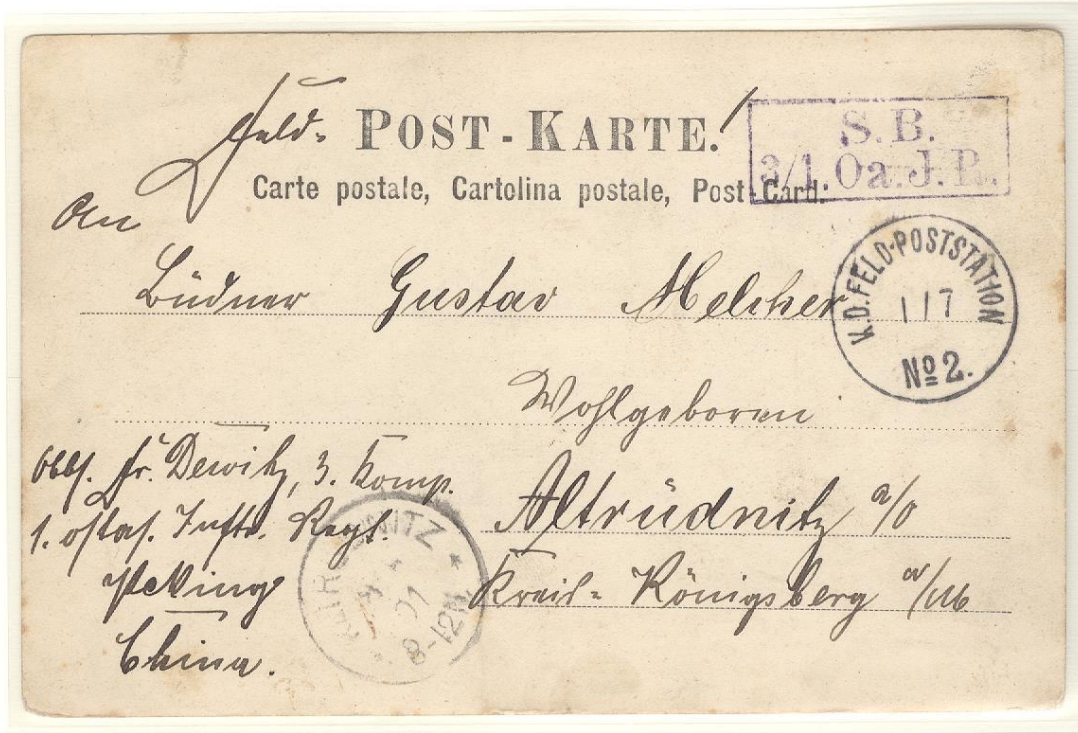 Feld-
POST-KARTE.
Carte postale, Cartolina postale, Post-Card.
S.B.
3/1.Oa.J.R.
K.D. FELD-POSTSTATION
1/7
No 2.
An
Büdner Gustav Melcher
Wohlgeboren
Altrüdnitz a/O
Kreis- Königsberg N/M
Abs. Fr. Dewitz, 3. Komp.
1. ostas. Inftr. Regt.
Peking
China.
8-12N.